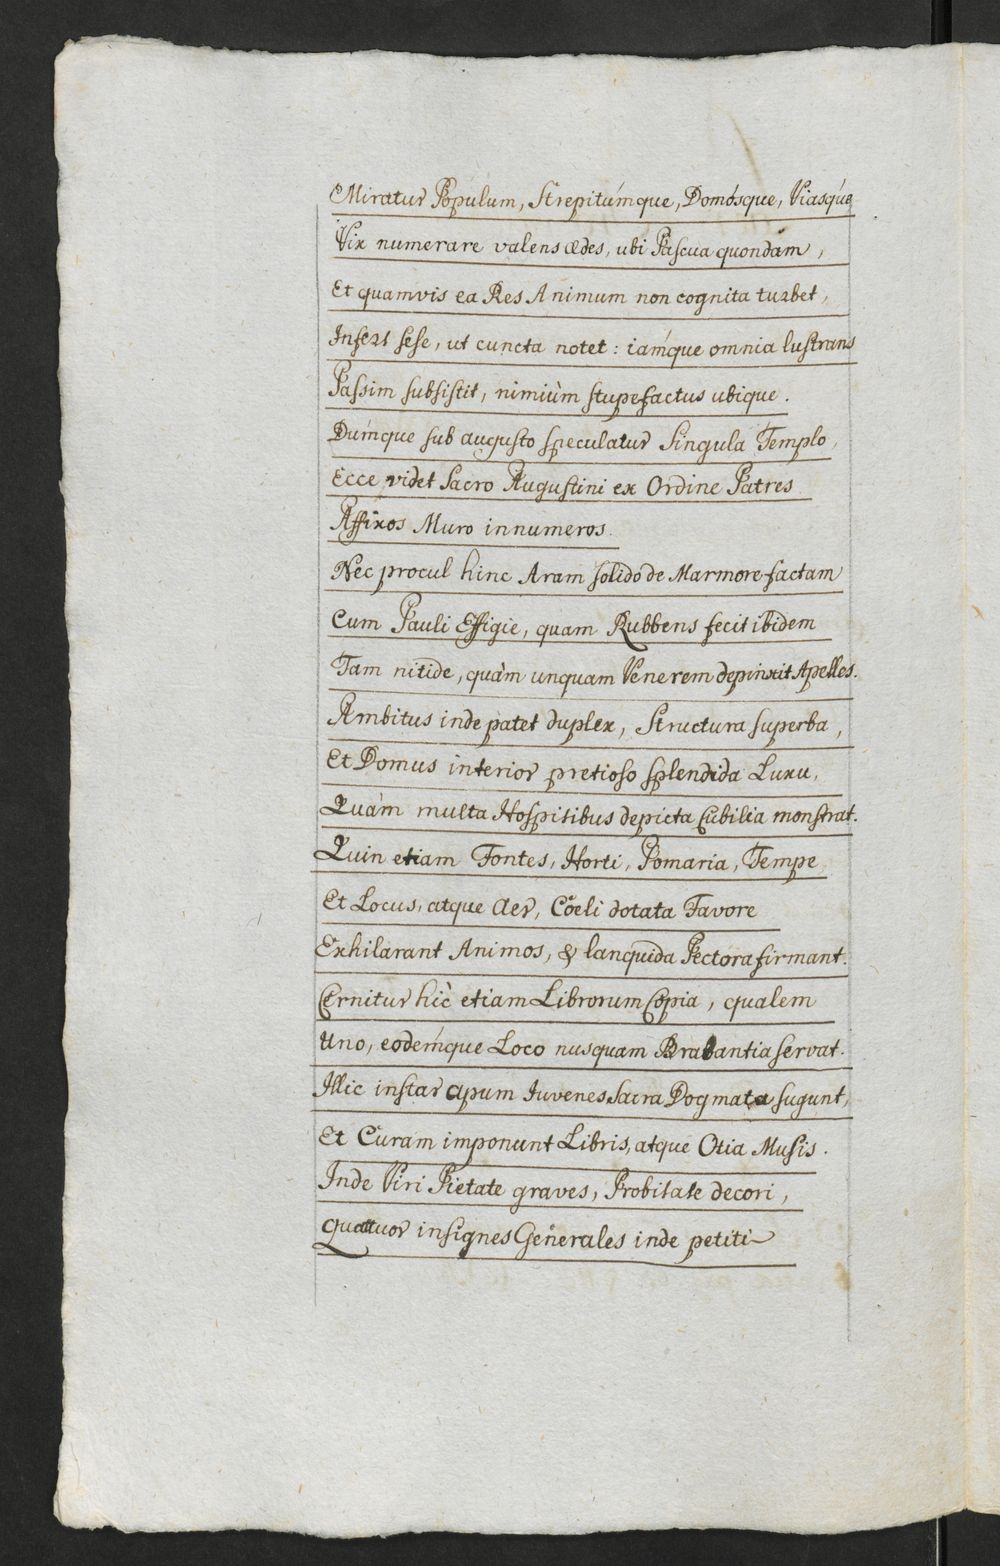 Miratur Populum, Strepitúmque, Domósque, Viasque
Vix numerare valens ædes, ubi Pascua quondam,
Et quamvis ea Res Animum non cognita turbet,
Insert sese, ut cuncta notet: iamque omnia lustrans
Passim subsistit, nimiùm stupefactus ubique.
Dumque sub augusto speculatur singula Templo,
Ecce videt Sacro Augustini ex Ordine Patres
Affixos Muro innumeros.
Nec procul hinc Aram solido de Marmore factam
Cum Pauli Effigie, quam Rubbens fecit ibidem
Tam nitide, quàm unquam Venerem depinxit Apelles.
Ambitus inde patet duplex, Structura superba,
Et Domus interior pretioso splendida Luxu,
Quàm multa Hospitibus depicta Cubilia monstrat.
Quin etiam Fontes, Horti, Pomaria, Tempe
Et Locus, atque Aer, Coeli dotata Favore
Exhilarant Animos, & languida Pectora firmant.
Cernitur hìc etiam Librorum Copia, qualem
Uno, eodemque Loco nusquam Brabantia servat.
Illic instar Apum Iuvenes Sacra Dogmata sugunt,
Et Curam imponunt Libris, atque Otia Musis.
Inde Viri Pietate graves, Probitate decori,
Quattuor insignes Generales inde petiti